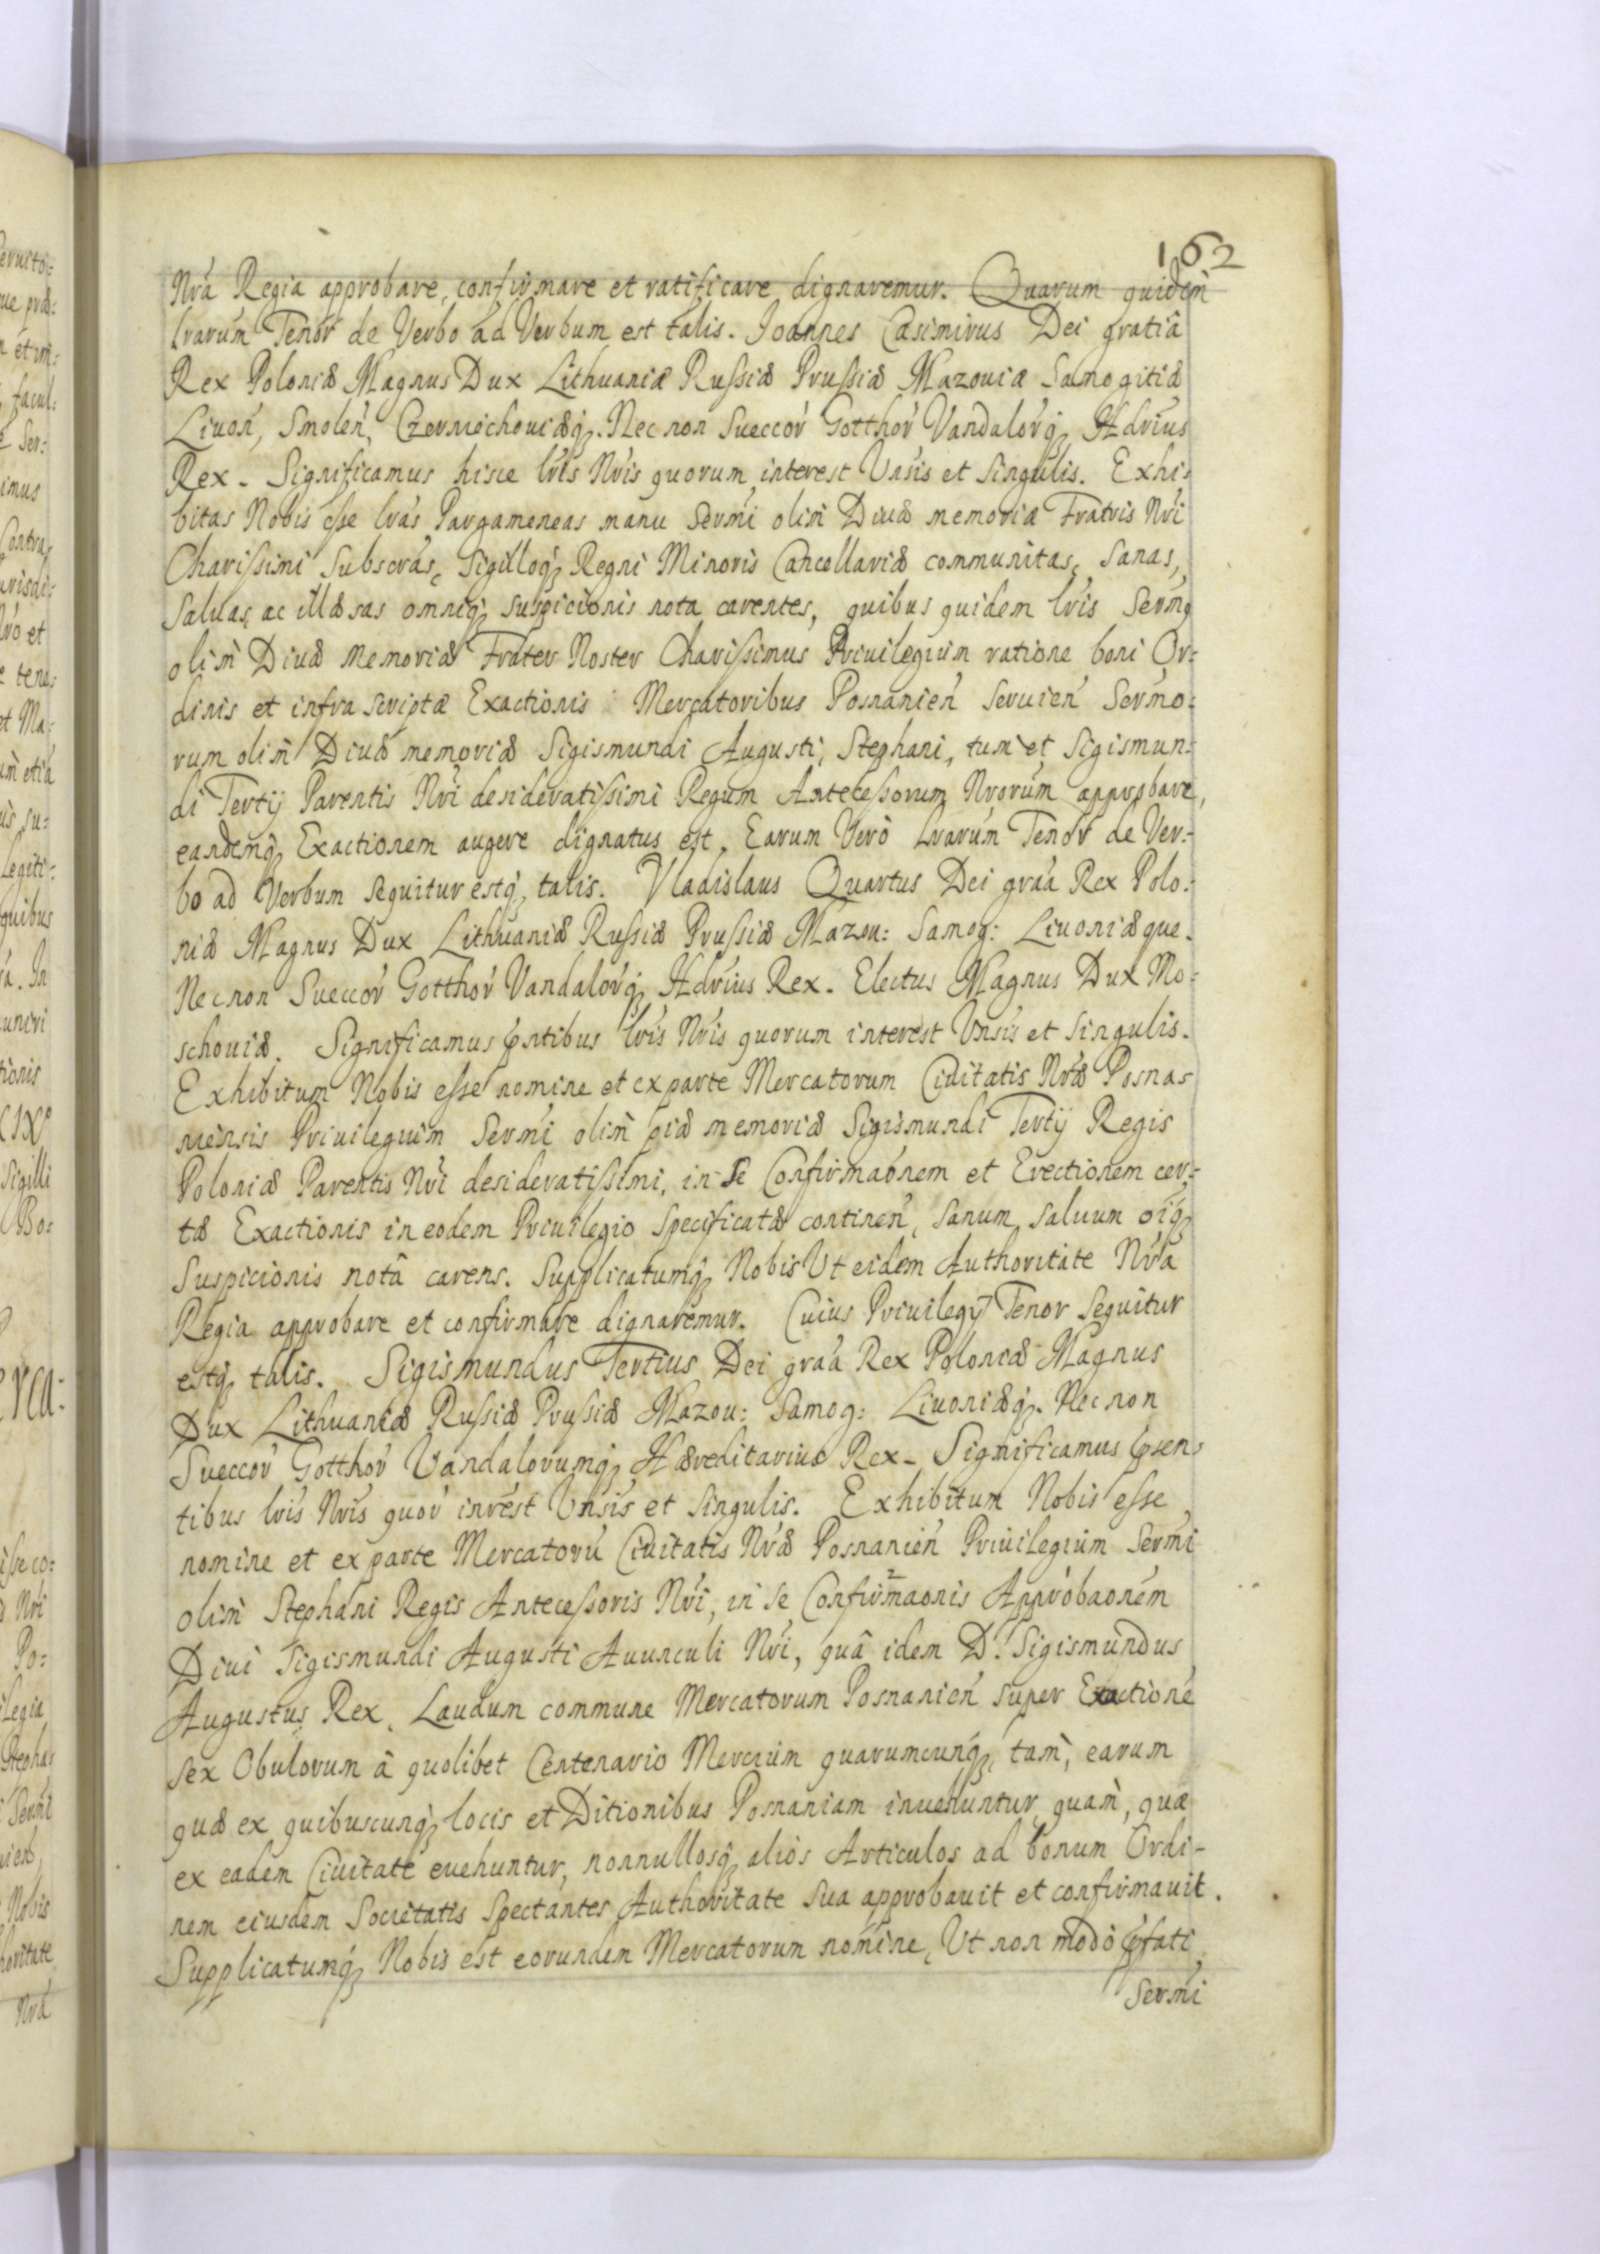 162
Nrã Regia approbare, confirmare et ratificare dignaremur. Quarum quidem
lrarum Tenor de Verbo ad Verbum est talis. Joannes Casimirus Dei gratiâ
Rex Poloniæ Magnus Dux Lithuaniæ Russiæ Prussiæ Mazouiæ Samogitiæ
Liuoñ, Smoleñ, Czerniechouiæq3. Nec non Sueccor̃ Gotthor̃ Vandalor̃q3 Hær̃ius
Rex. Significamus hisce lris̃ Nris̃ quorum interest Vnĩs et Singulis. Exhi-
bitas Nobis esse lras̃ Pargameneas manu Serm̃i olim̃ Diuæ memoriæ Fratris Nrĩ
Charissimi Subscrãs, Sigilloq3 Regni Minoris Cancellariæ communitas, Sanas,
Saluas, ac illæsas omniq3 suspicionis nota carentes, quibus quidem lris̃ Serm̃9
olim̃ Diuæ memoriæ Frater Noster Charissimus Priuilegium ratione boni Or-
dinis et infra scriptæ Exactionis Mercatoribus Posnanieñ Seruieñ Serm̃o-
rum olim̃ Diuæ memoriæ Sigismundi Augusti, Stephani, tum et Sigismun-
di Tertij Parentis Nrĩ desideratissimi Regum Antecessorum Nrorũm approbare,
eandemq3 Exactionem augere dignatus est. Earum Verò lrarũm Tenor de Ver-
bo ad Verbum sequitur estq3 talis. Vladislaus Quartus Dei grãa Rex Polo-
niæ Magnus Dux Lithuaniæ Russiæ Prussiæ Mazou: Samog: Liuoniæque.
Nec non Sueccor̃ Gotthor̃ Vandalor̃q3 Hær̃ius Rex. Electus Magnus Dux Mo-
schouiæ. Significamus p̃ntibus lris̃ Nris̃ quorum interest Vnsĩs et Singulis.
Exhibitum Nobis esse nomine et ex parte Mercatorum Ciuitatis Nræ̃ Posna-
niensis Priuilegium Serm̃i olim̃ piæ memoriæ Sigismundi Tertij Regis
Poloniæ Parentis Nrĩ desideratissimi, in Se Confirmaõnem et Erectionem cer-
tæ Exactionis in eodem Priuilegio specificatæ contineñ, Sanum, saluum oĩq3
Suspicionis notâ carens. Supplicatumq3 Nobis Vt eidem Authoritate Nrã
Regia approbare et confirmare dignaremur. Cuius Priuilegÿ Tenor Sequitur
estq3 talis. Sigismundus Tertius Dei grãa Rex Poloniæ Magnus
Dux Lithuaniæ Russiæ Prussiæ Mazou: Samog: Liuoniæq3. Nec non
Sueccor̃ Gotthor̃ Vandalorumq3 Hæreditarius Rex. Significamus p̃sen-
tibus lris̃ Nris̃ quor̃ inrẽst Vnsĩs et Singulis. Exhibitum Nobis esse
nomine et ex parte Mercatorũ Ciuitatis Nræ̃ Posnanieñ Priuilegium Serm̃i
olim̃ Stephani Regis Antecessoris Nrĩ, in se Confirmaõnis Approbaõnem
Diui Sigismundi Augusti Auunculi Nrĩ, quâ idem D. Sigismundus
Augustus Rex, Laudum commune Mercatorum Posnanieñ super Exactione
Sex Obulorum â quolibet Centenario Mercium quarumcunq3, tam̀, earum
quæ ex quibuscunq3 locis et Ditionibus Posnaniam inuehuntur, quam̀, quæ
ex eadem Ciuitate euehuntur, nonnullosq3 aliòs Articulos ad bonum Ordi-
nem eiusdem Societatis Spectantes Authoritate Sua approbauit et confirmauit.
Supplicatumq3 Nobis est eorundem Mercatorum nomine, Vt non modò p̃fati
Serm̃i